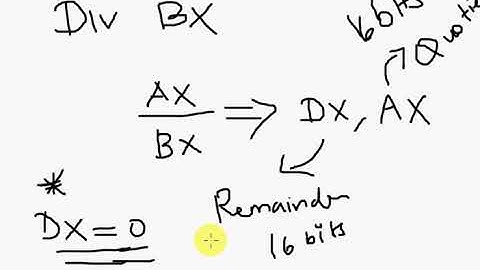 Div BX
16 bits
Quotie
AX
BX
⇒ DX, AX
Remainder
16 bits
*
DX = 0